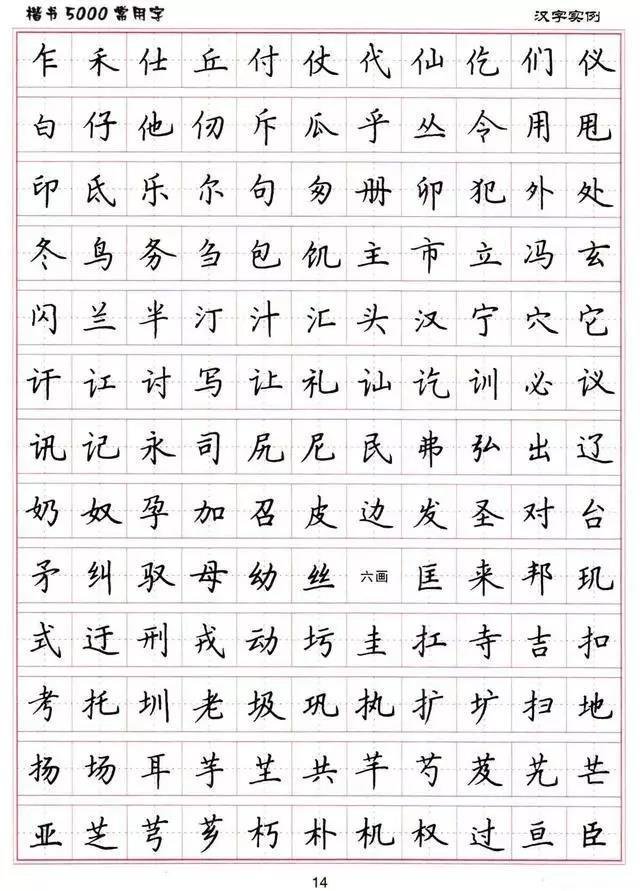 楷书5000常用字 汉字实例
乍禾仕丘付仗代仙仡们仪
白仔他仞斥瓜乎丛令用甩
印氐乐尔句匆册卯犯外处
冬鸟务刍包饥主市立冯玄
闪兰半汀汁汇头汉宁穴它
讦讧讨写让礼讪讫训必议
讯记永司尻尼民弗弘出辽
奶奴孕加召皮边发圣对台
矛纠驭母幼丝六画匡来邦玑
式迂刑戎动圬圭扛寺吉扣
考托圳老圾巩执扩圹扫地
扬场耳芋共芊芍芨艽芒
亚芝芎芗朽朴机权过亘臣
14